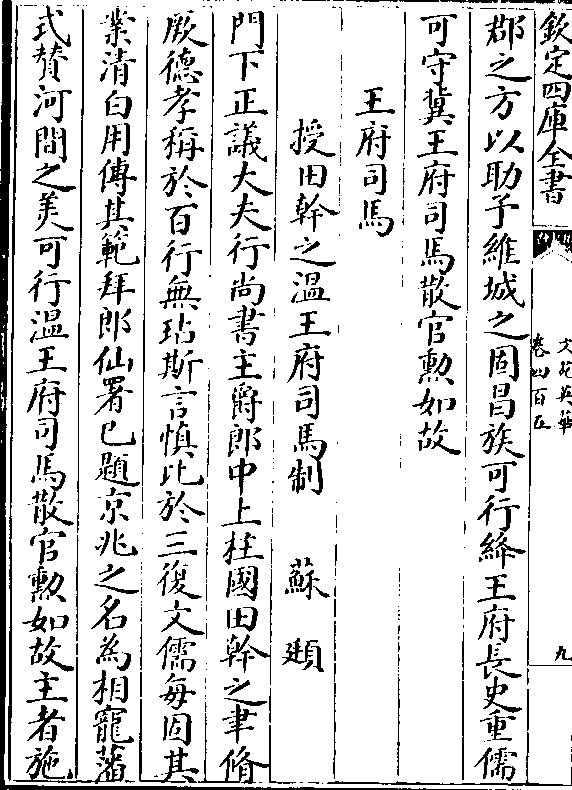 欽定四庫全書
文苑英華
卷四百五
九
郡之方以助予維城之固昌族可行絳王府長史重儒
可守冀王府司馬散官勲如故
王府司馬
授田幹之溫王府司馬制　蘇頲
門下正議大夫行尚書主爵郎中上柱國田幹之聿脩
厥德孝稱於百行無玷斯言慎比於三復文儒每固其
業清白用傳其範拜郎仙署已題京兆之名為相寵藩
式贊河間之美可行溫王府司馬散官勲如故主者施